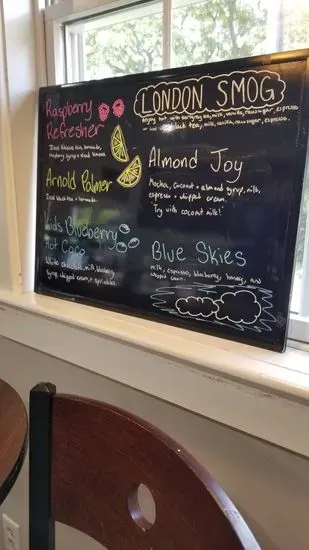 Raspberry
Refresher
Iced hibiscus tea, lemonade,
raspberry syrup + dried lemons.
Arnold Palmer
Iced black tea + lemonade.
Kids Blueberry
Hot Coco
White chocolate, milk, blueberry
syrup, whipped cream, + sprinkles.
LONDON SMOG
Enjoy hot with earl grey tea, milk, vanilla, raw sugar, espresso
or iced black tea, milk, vanilla, raw sugar, espresso.
Almond Joy
Mocha, coconut + almond syrup, milk,
espresso + whipped cream.
Try with coconut milk!
Blue Skies
milk, espresso, blueberry, honey, and
whipped cream.